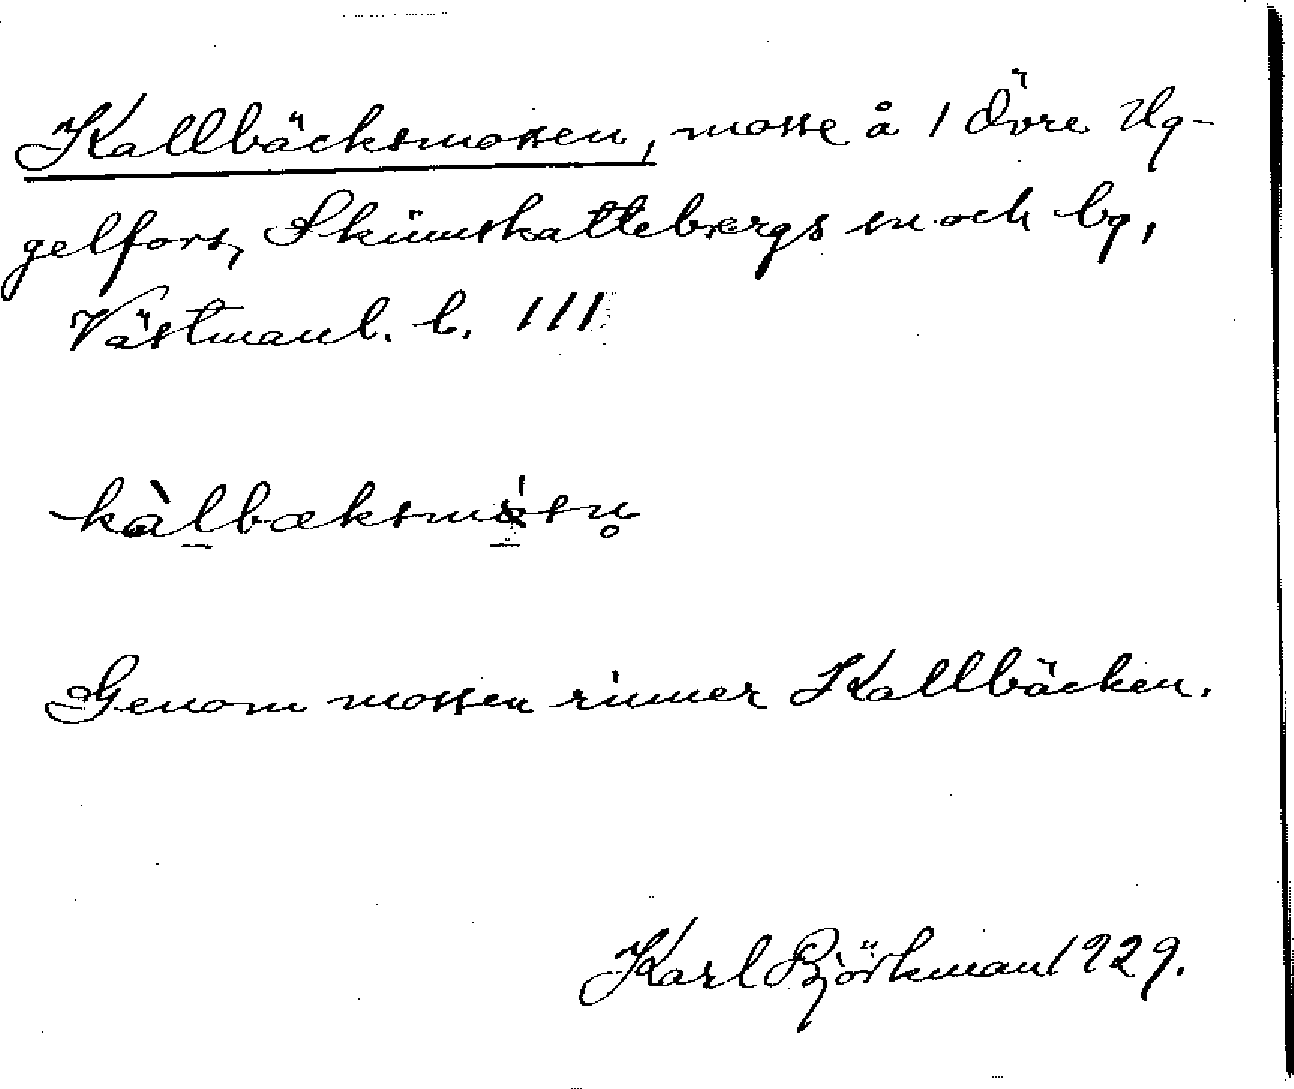 Kallbäcksmossen, mosse å 1 Övre Ug-
gelfors, Skinnskattebergs sn och bg,
Västmanl. l. 111
kàlbæksmósn̥
Genom mossen rinner Kallbäcken.
Karl Björkman 1929.